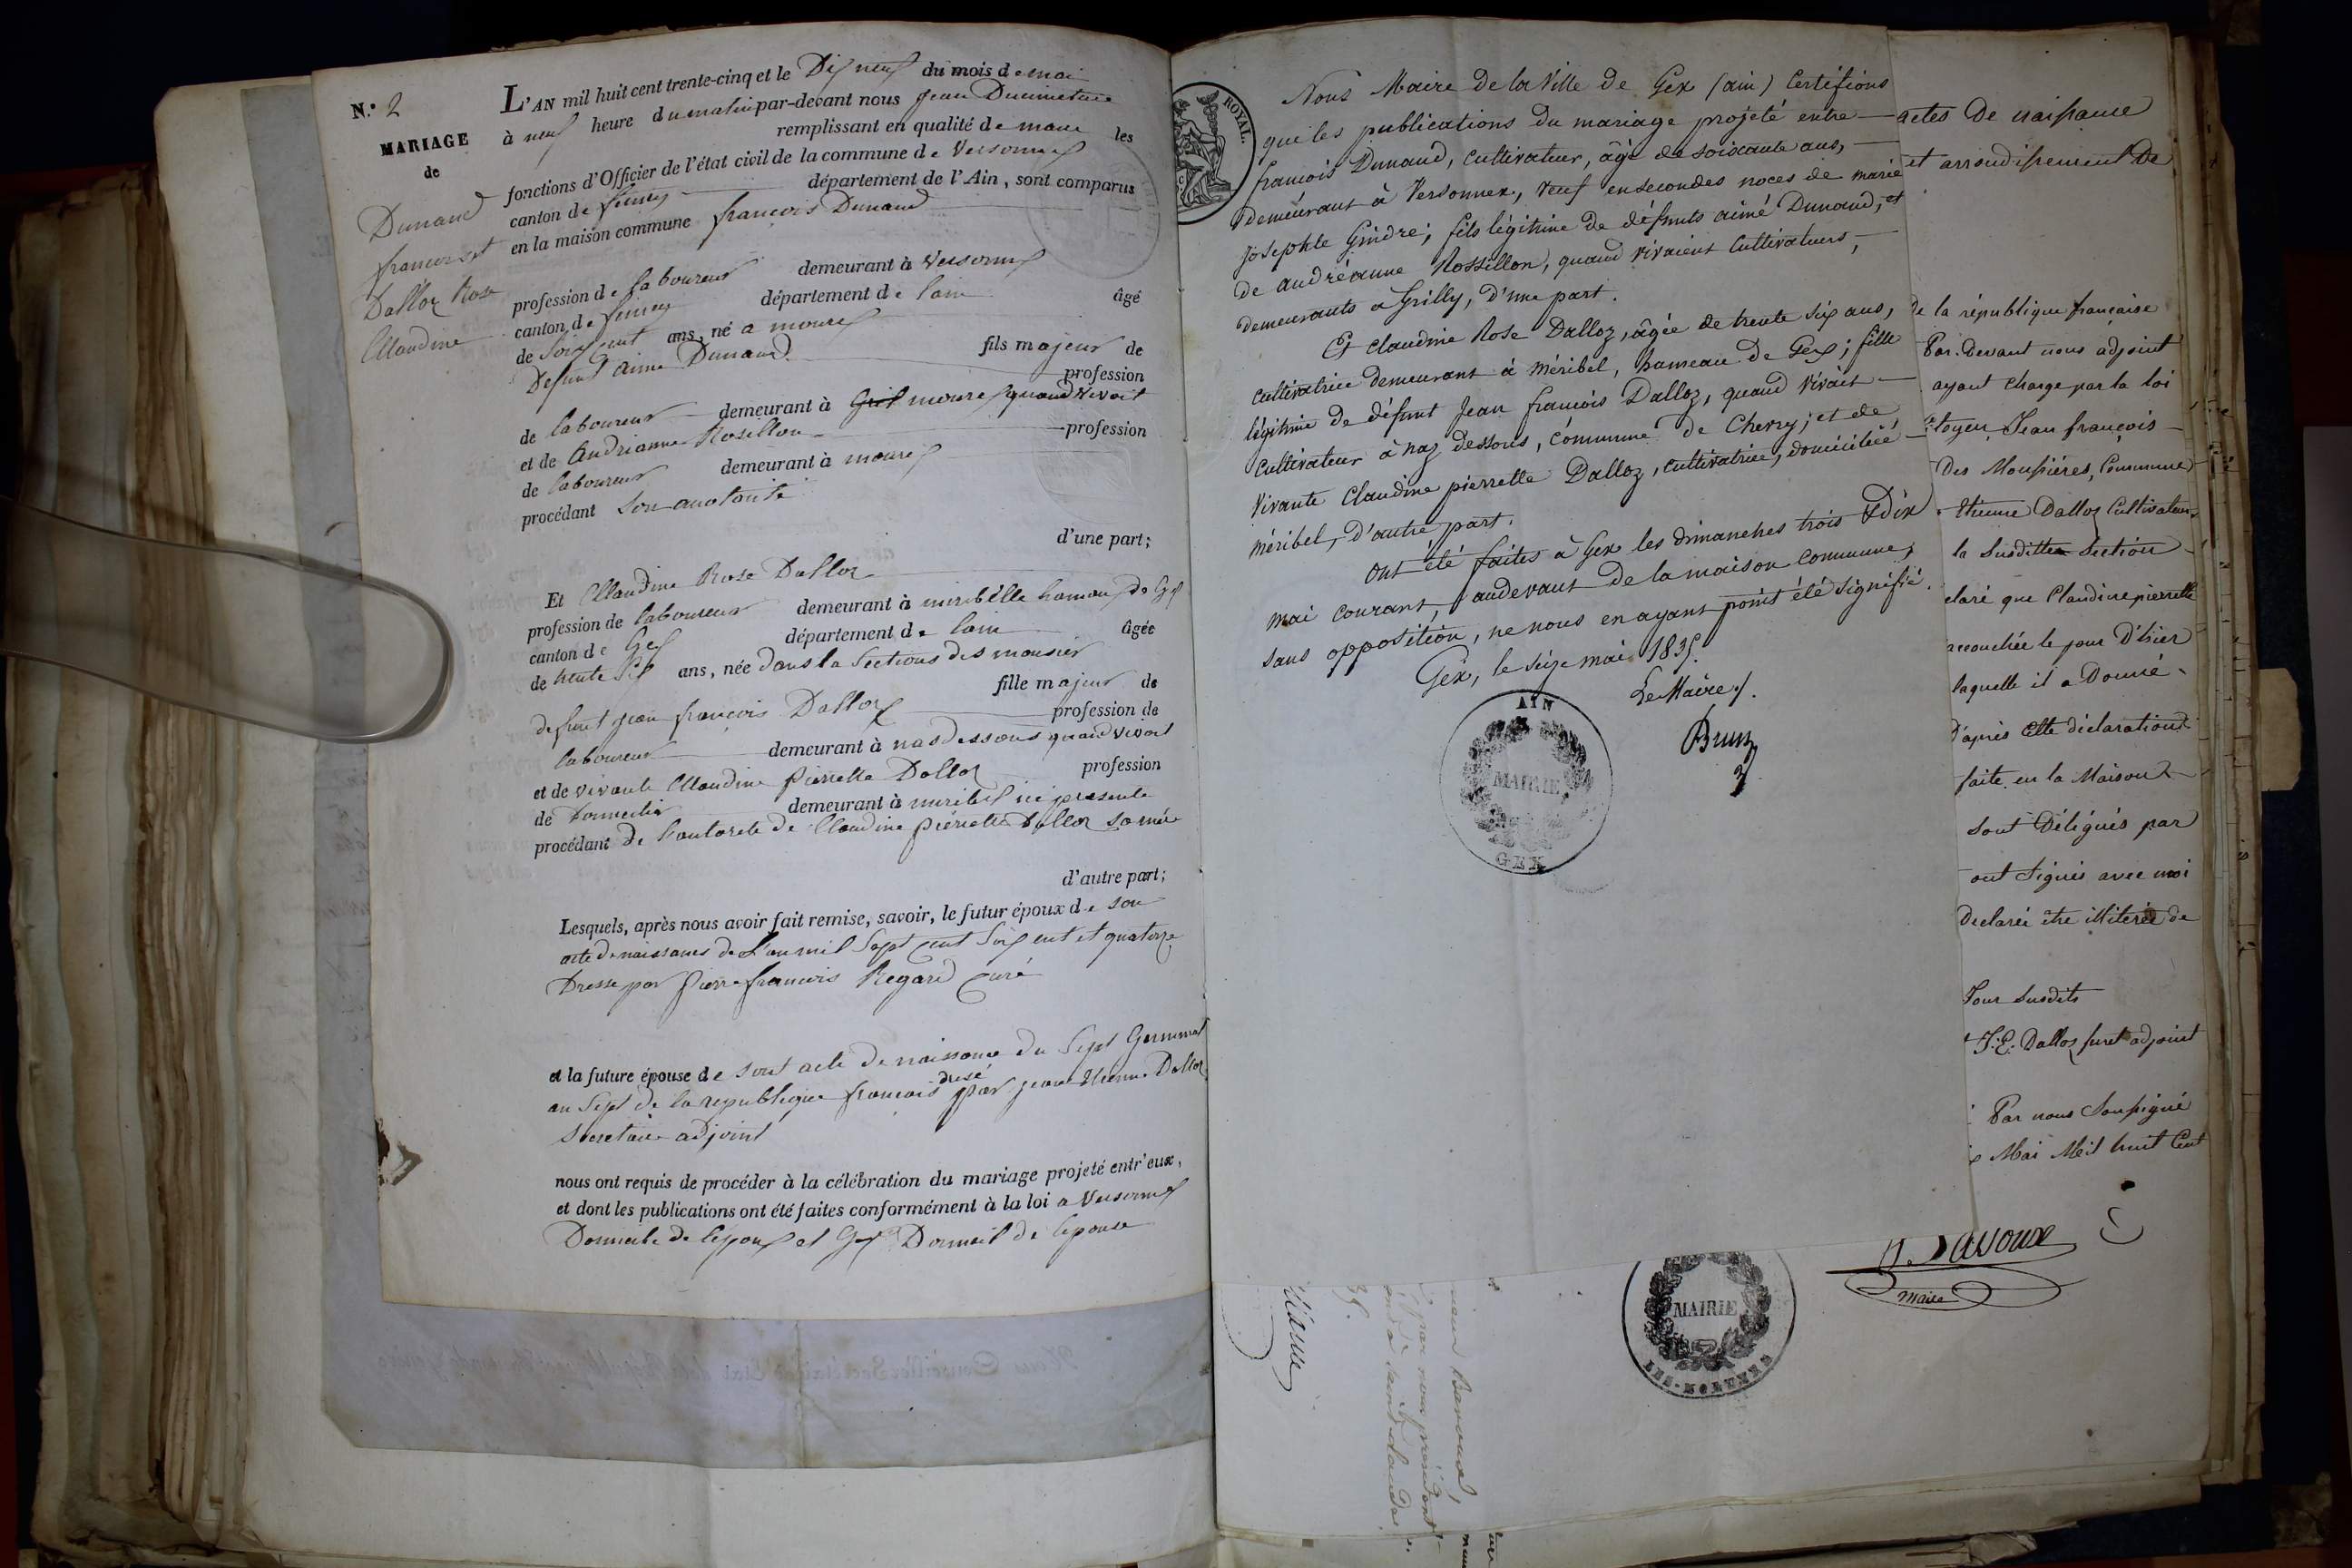 N.° 2
MARIAGE
de
Dunand
francois et
Dalloz Rose
Claudine
L'AN mil huit cent trente-cinq et le Dix neuf du mois de mai
à neuf heure du matin par-devant nous Jean
remplissant en qualité de maire les
fonctions d'Officier de l'état civil de la commune de Versonnex
canton de ferney département de l'Ain, sont comparus
en la maison commune francois Dunand
profession de laboureur demeurant à Versonnex
canton de ferney département de lain âgé
de Soixent ans, né a mourex
fils majeur de
Defunt aime Dunand profession
de laboureur demeurant à mourex quand vivoit
et de Andrianne Rosillon profession
de laboureur demeurant à mourex
procédant Son autorité
d'une part;
Et Claudine Rose Dalloz
profession de laboureur demeurant à miribelle hamau de Gex
canton de Gex département de lain âgée
de trente Six ans, née dans la Sections des mousier
fille majeur de
defunt jean françois Dalloz profession de
laboureur demeurant à nas dessous quand vivoit
et de vivante Claudine Pierrette Dalloz profession
de demeurant à miribel ici presente
procédant de lautorete de Claudine pierrette Dalloz sa mér
d'autre part;
Lesquels, après nous avoir fait remise, savoir, le futur époux de son
acte de naissances de L'an mil Sept cent Soix ent et quatorze
Dresse par Pierre francois Regard curé
et la future épouse de sont acte de naissance du Sept Germinal
an Sept de la republique francois dresé par jean Etienne Dalloz
Secretaire adjoint
nous ont requis de procéder à la célébration du mariage projeté entr'eux,
et dont les publications ont été faites conformément à la loi a Versonnex
Domicile de lepoux et Gex Domicil de lepouse
ROYAL.
Nous Maire de la Ville de Gex (ain) Certifions
que les publications du mariage projeté entre
francois Dunand, cultivateur, âgé de soixante ans,
demeurant à Versonnex, veuf en secondes noces de marie
Josephte Gindre; fils légitime de défunts aimé Dunand, et
de andréanne Rossillon, quand vivaient cultivateurs,
demeurants à Grilly, d'une part.
Et Claudine Rose Dalloz, âgée de trente six ans,
cultivatrice demeurant à méribel, hameau de Gex; fille
légitime de défunt Jean francois Dalloz, quand vivait
cultivateur à naz dessous, commune de Chevry; et de
vivante Claudine pierrette Dalloz, cultivatrice, domiciliée
méribel, d'autre part.
Ont été faites à Gex les dimanches trois & dix
mai courant, audevant de la maison commune,
sans opposition, ne nous en ayant point été signifié.
Gex, le seize mai 1835.
Le Maire
Brun
AIN
MAIRIE
GEX
actes De naissance
et arrondissement De
de la république française
Par-Devant nous adjoint
ayant charge par la loi
toyen Jean françois
des Moussières, Commune
Etienne Dalloz Cultivateur
la Susditte Section
claré que Claudine pierrette
accouchée le jour D'hier
laquelle il a Donné
D'après Cette déclaration
faite en la Maison
sont Délégués par
ont signés avec moi
Declarée être illiterée de
Jour susdits
J. E. Dalloz furet adjoint
Par nous Soussigné
Mai Mil huit Cent
maire
MAIRIE
LES-MOLUNES
par nous président
35.